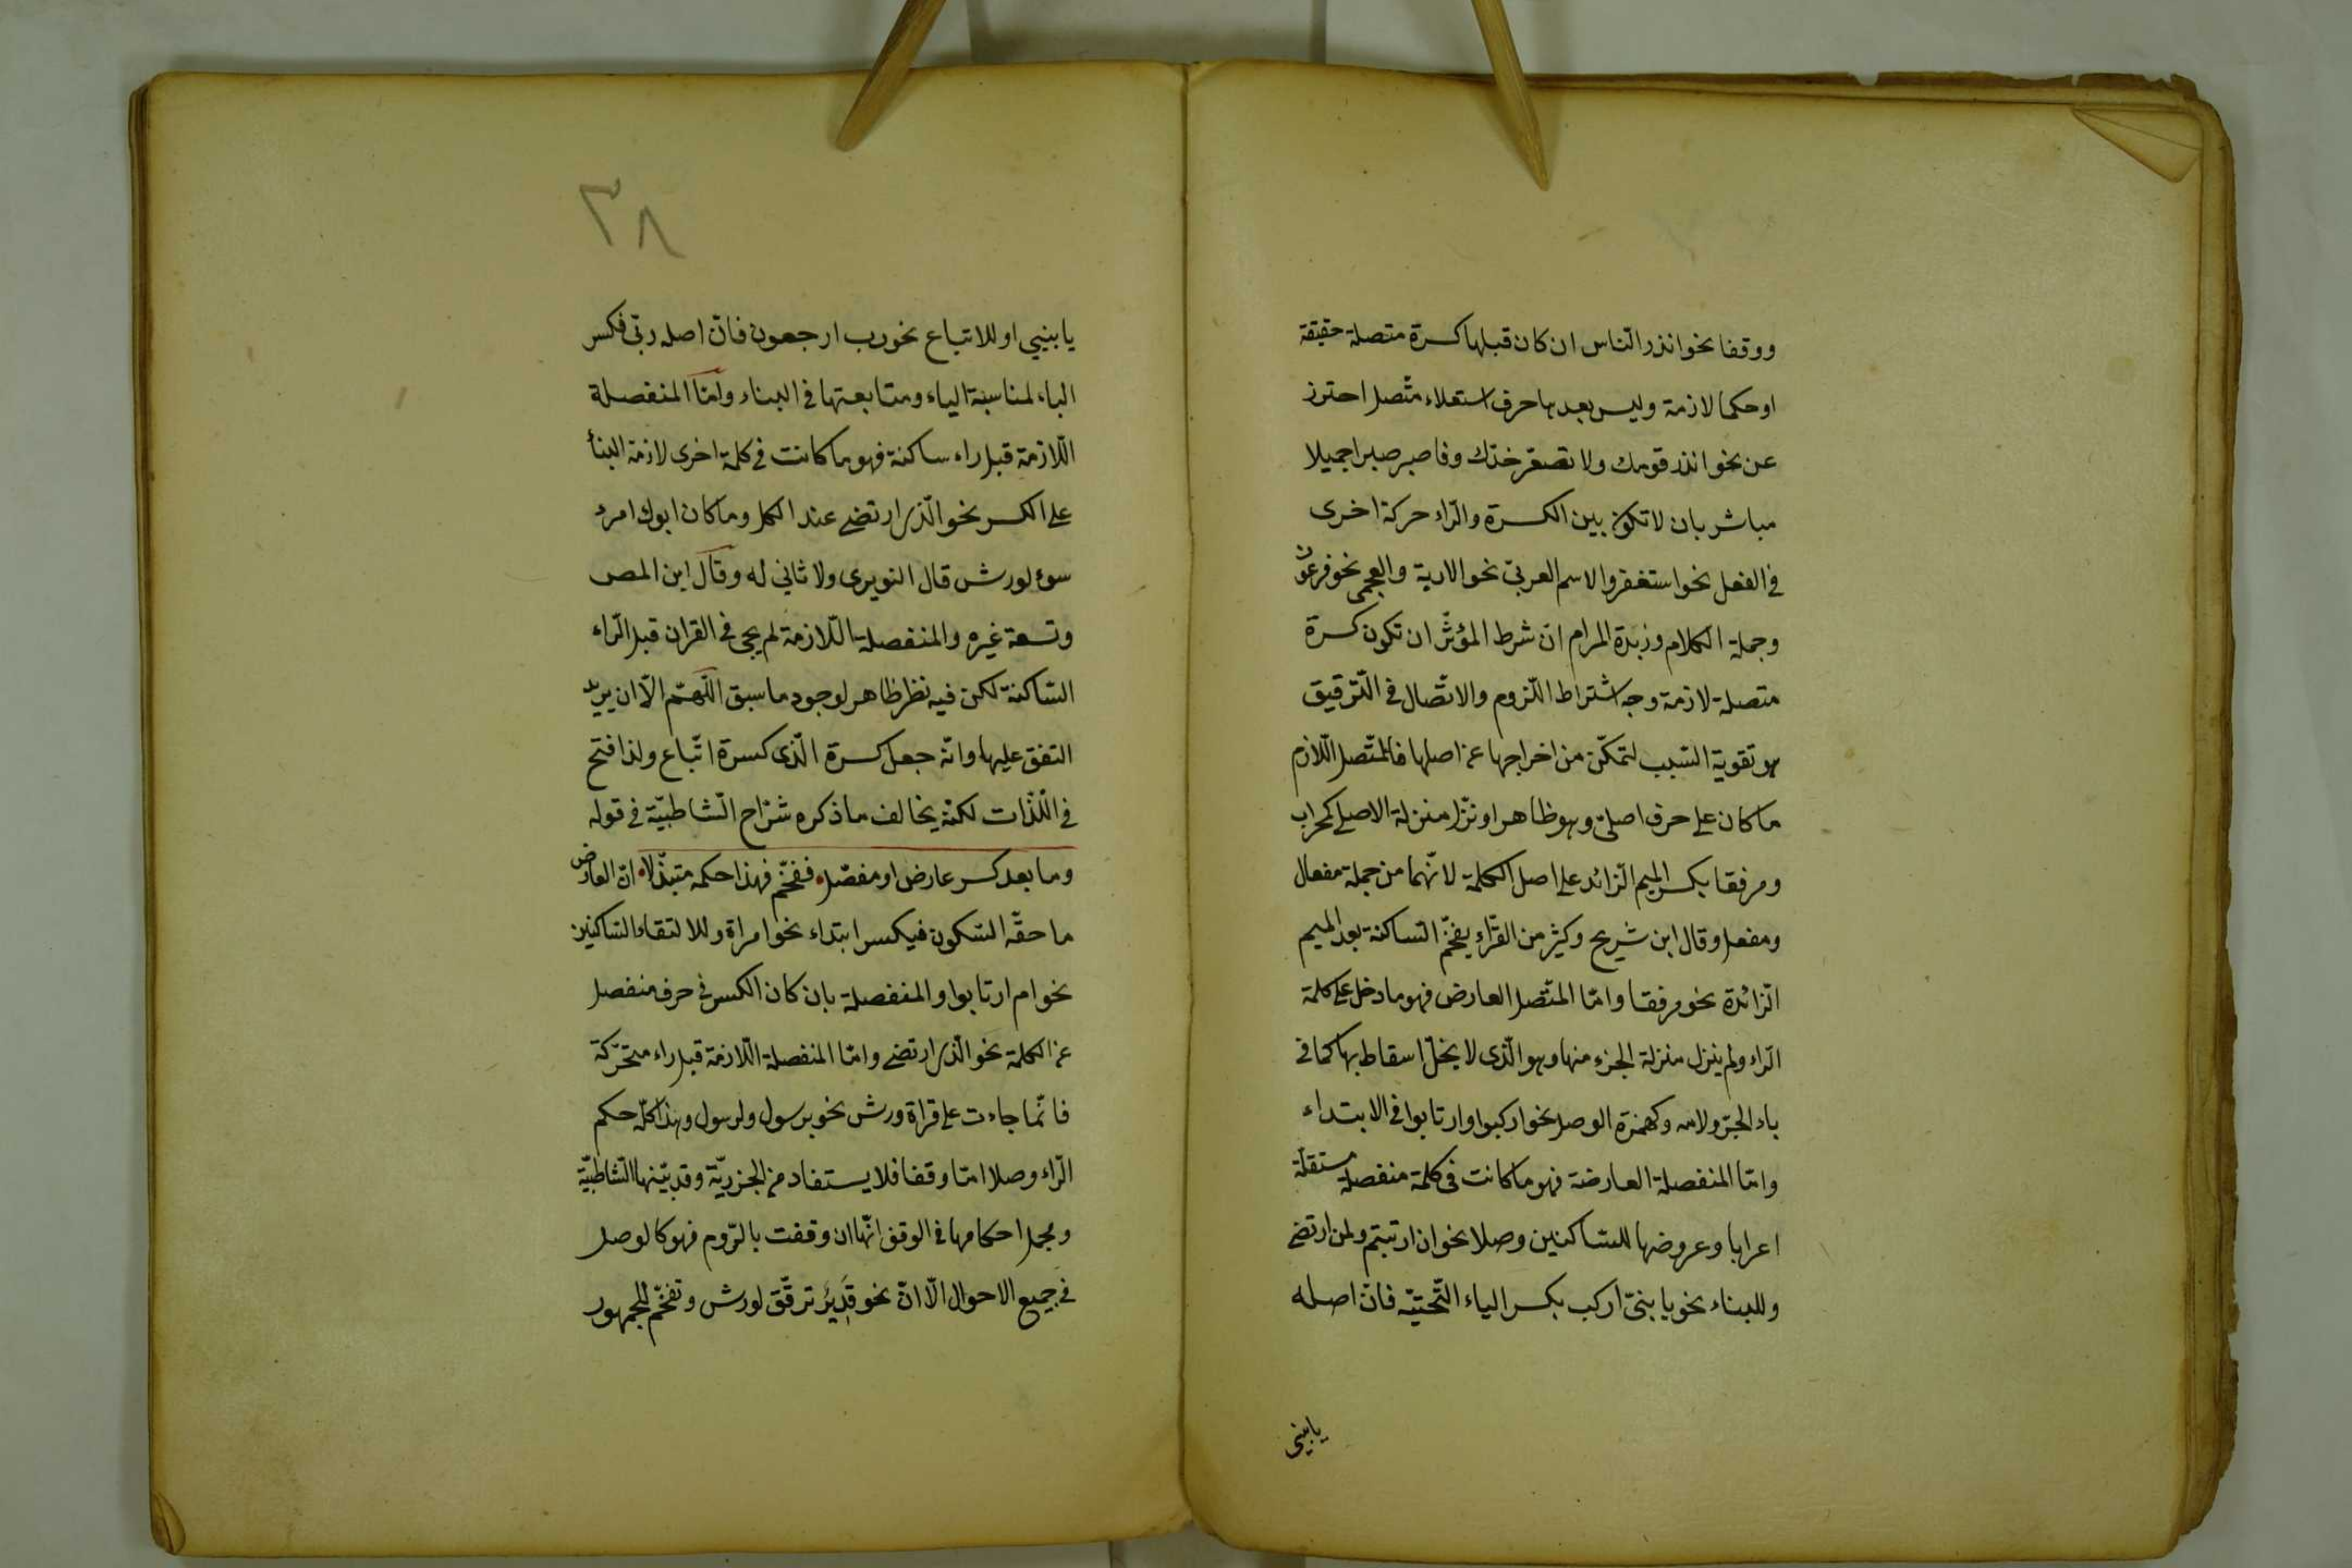 ووقفا نحو انذر الناس ان كان قبلها كسرة متصلة حقيقة
او حكما لازمة وليس بعدها حرف استعلاء متّصل احترز
عن نحو انذر قومك ولا تصعّر خدّك وفاصبر صبرا جميلا
مباشر بان لا تكون بين الكسرة والرّاء حركة اخرى
في الفعل نحو استغفر والاسم العربيّ نحو الاربة والعجمى نحو فرعون
وجملة الكلام وزبدة المرام انّ شرط المؤثّر ان تكون كسرة
متصلة لازمة وجه اشتراط اللّزوم والاتّصال في التّرقيق
هو تقوية السّبب لتمكّن من اخراجها عن اصلها فالمتّصل اللّازم
ما كان على حرف اصليّ وهو ظاهر او نزّل منزلة الاصلى كمحراب
ومرفقا بكسر الميم الزّائد على اصل الكلمة لانّهما من جملة مفعال
ومفعل وقال ابن شريح وكثير من القرّاء يفخّم السّاكنة بعد الميم
الزّائدة نحو مرفقا وامّا المتّصل العارض فهو ما دخل على كلمة
الرّاء ولم ينزل منزلة الجزء منها وهو الّذى لا يخلّ اسقاطها بها كما في
باء الجرّ ولامه وكهمزة الوصل نحو اركبوا وارتابوا في الابتداء
وامّا المنفصلة العارضة فهو ما كانت في كلمة منفصلة مستقلّة
اعرابا وعروضها للسّاكنين وصلا نحو ان ارتبتم ولمن ارتضى
وللبناء نحو يا بنىّ اركب بكسر الياء التّحتيّة فانّ اصله
يا بنيى
٣٨
يا بنيي او للاتباع نحو رب ارجعون فانّ اصله ربّي فكسر
الباء لمناسبة الياء ومتابعتها في البناء وامّا المنفصلة
اللّازمة قبل راء ساكنة فهو ما كانت في كلمة اخرى لازمة البناء
على الكسر نحو الّذى ارتضى عند الكل وما كان ابوك امرء
سوء لورش قال النويرى ولا ثاني له وقال ابن المص
وتسعة غيره والمنفصلة اللّازمة لم يجئ في القران قبل الرّاء
السّاكنة لكن فيه نظر ظاهر لوجود ما سبق اللّهمّ الّا ان يريد
المتفق عليها وانّه جعل كسرة الّذى كسرة اتّباع ولذا فتح
في اللّذات لكنّه يخالف ما ذكره شرّاح الشّاطبيّة في قوله
وما بعد كسر عارض او مفصّل ففخّم فهذا حكمه متبذّلا انّ العارض
ما حقّه السّكون فيكسر ابتداء نحو امراة وللالتقاء السّاكنين
نحو ام ارتابوا والمنفصلة بان كان الكسر في حرف منفصل
عن الكلمة نحو الّذى ارتضى وامّا المنفصلة اللّازمة قبل راء متحرّكة
فانّما جاءت على قراة ورش نحو برسول ولرسول وهذا كلّه حكم
الرّاء وصلا امّا وقفا فلا يستفاد من الجزريّة وقد بيّنها الشّاطبيّة
ومجمل احكامها في الوقف انّها ان وقفت بالرّوم فهو كالوصل
في جميع الاحوال الّا انّ نحو قَدِيرٌ ترقّق لورش وتفخّم للجمهور